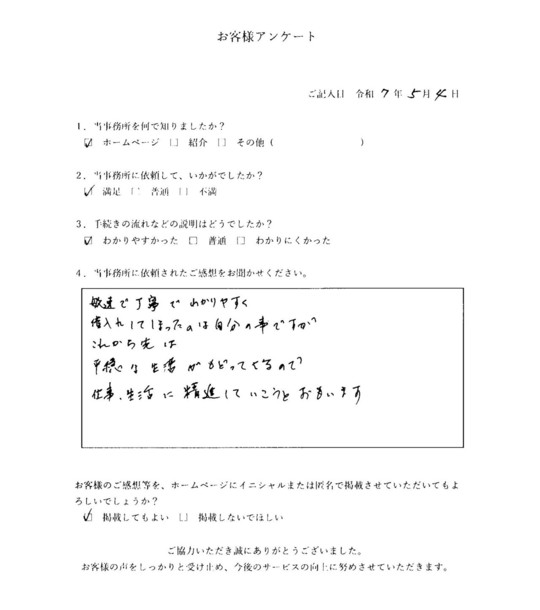 お客様アンケート
ご記入日 令和 7 年 5 月 4 日
1．当事務所を何で知りましたか？
☑ ホームページ □ 紹介 □ その他（ ）
2．当事務所に依頼して、いかがでしたか？
☑ 満足 □ 普通 □ 不満
3．手続きの流れなどの説明はどうでしたか？
☑ わかりやすかった □ 普通 □ わかりにくかった
4．当事務所に依頼されたご感想をお聞かせください。
敏速で丁寧でわかりやすく
借入れしてしまったのは自分の事ですが
これから先は
平穏な生活がもどってくるので
仕事、生活に精進していこうとおもいます
お客様のご感想等を、ホームページにイニシャルまたは匿名で掲載させていただいてもよ
ろしいでしょうか？
☑ 掲載してもよい □ 掲載しないでほしい
ご協力いただき誠にありがとうございました。
お客様の声をしっかりと受け止め、今後のサービスの向上に努めさせていただきます。